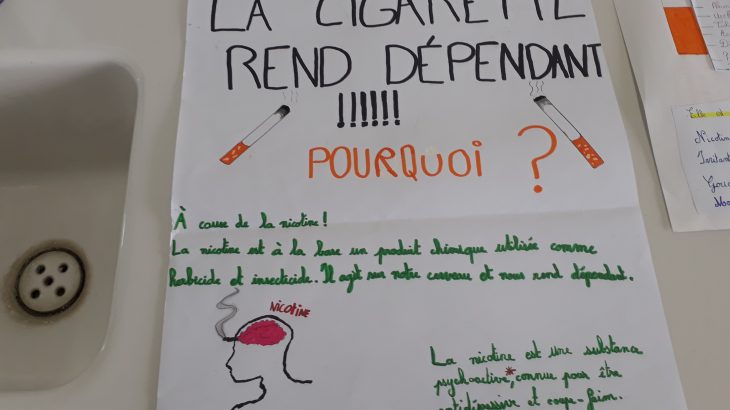 LA CIGARETTE
REND DÉPENDANT
!!!!!!
POURQUOI ?
À cause de la nicotine!
La nicotine est à la base un produit chimique utilisée comme
herbicide et insecticide. Il agit sur notre cerveau et nous rend dépendant.
NICOTINE
La nicotine est une substance
psychoactive*, connue pour être
antidépressive et coupe-faim.
Nicotin